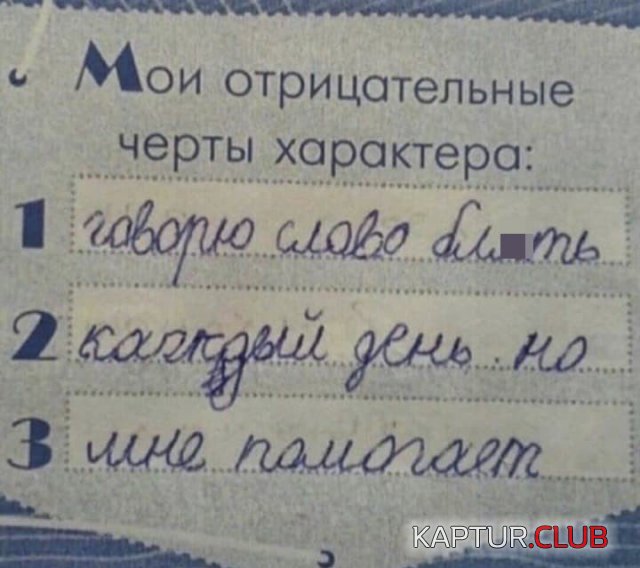 Мои отрицательные
черты характера:
1 говорю слово бл■ть
2 каждый день. но
3 мне помогает
KAPTUR.CLUB